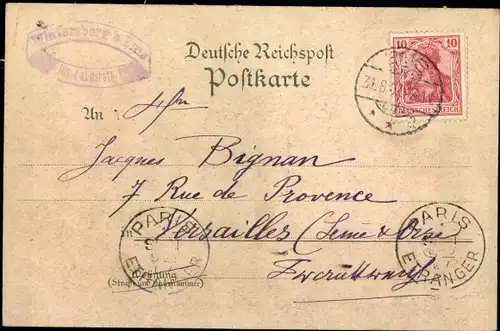 Deutsche Reichspost
Postkarte
10 10
DEUTSCHES REICH
31.8.
An
Jacques Bignan
7 Rue de Provence
Versailles (Seine & Oise
PARIS
ETRANGER
PARIS
ETRANGER
Wohnung
(Straße und Hausnummer)